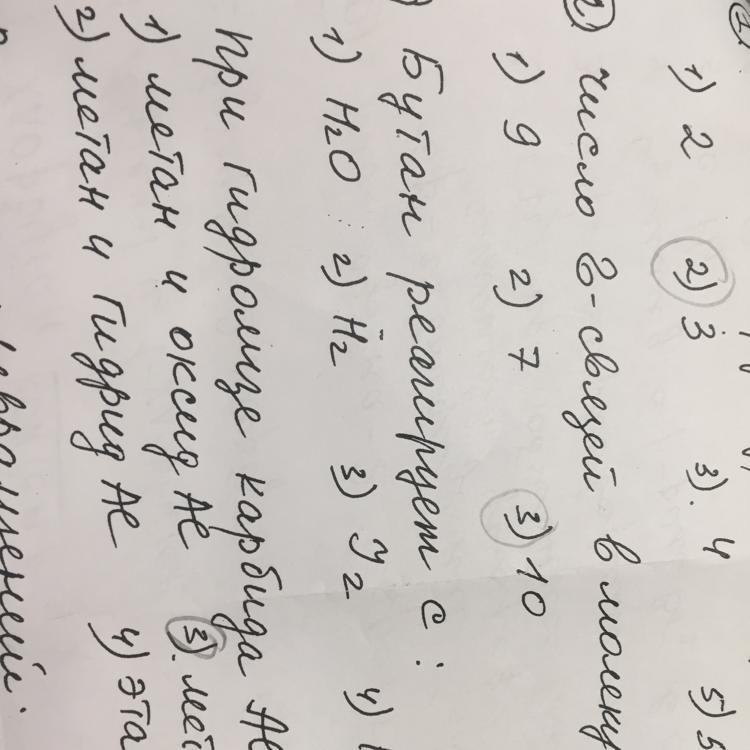 1) 2 2) 3 3). 4 5)
2) число б-связей в молеку
1) 9 2) 7 3) 10
Бутан реагирует с:
1) H2O 2) H2 3) J2 4)
при гидролизе карбида Al
1) метан и оксид Al 3). мет
2) метан и гидрид Al 4) эта